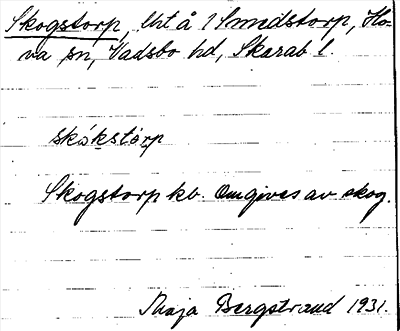 Skogstorp, lht å 1 Smedstorp, Ho-
va sn, Vadsbo hd, Skarab l.
skókstårp
Skogstorp kb. Omgives av skog.
Maja Bergstrand 1931.